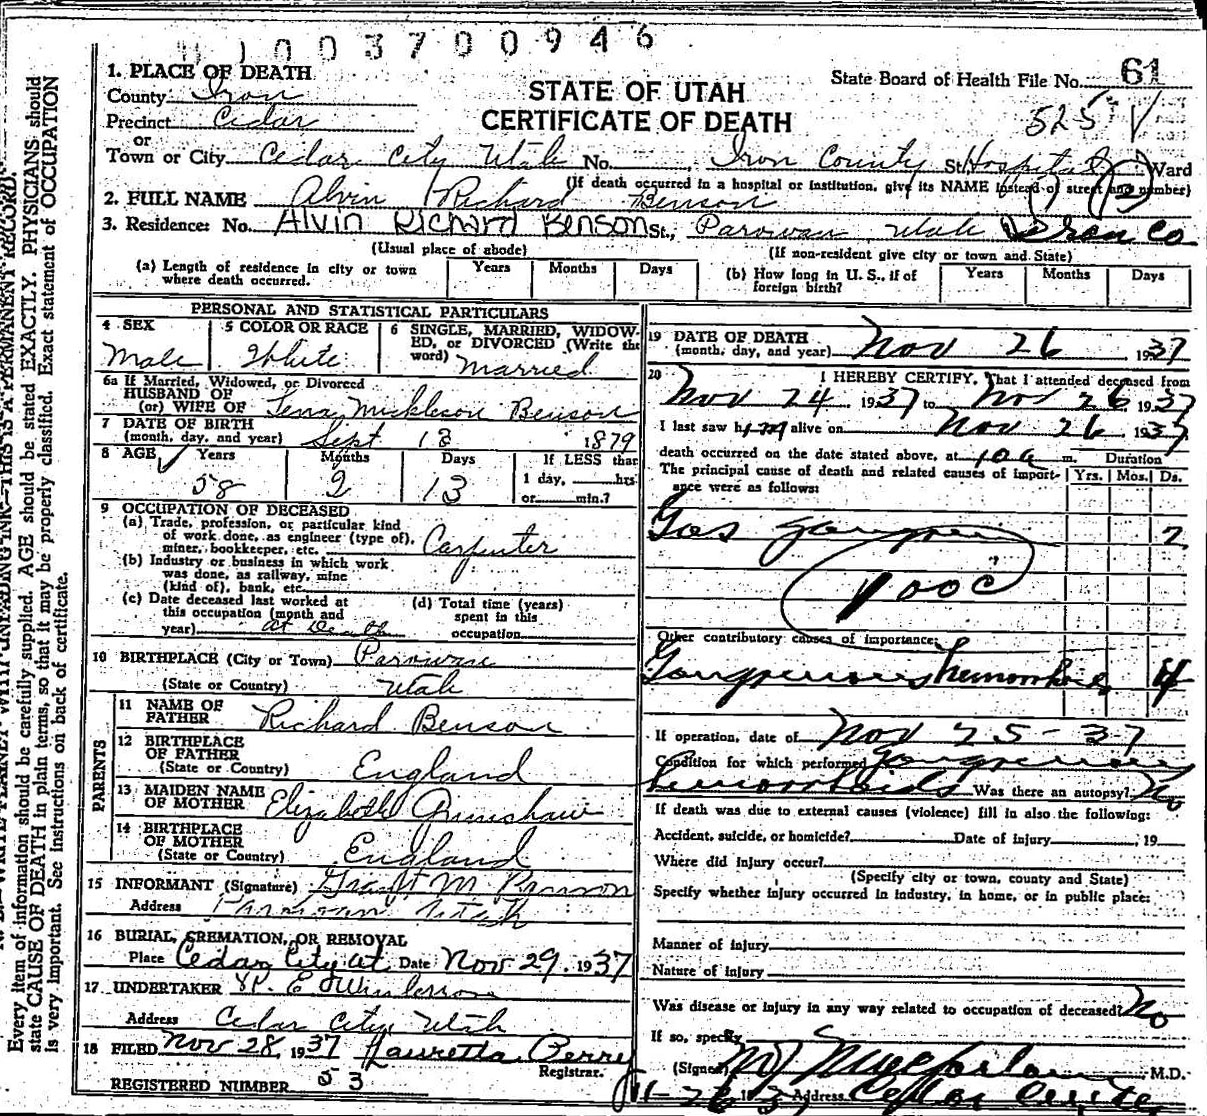 1003700946
1. PLACE OF DEATH
STATE OF UTAH
CERTIFICATE OF DEATH
State Board of Health File No. 61
525
County Iron
Precinct Cedar
or
Town or City Cedar City Utah No. Iron County St. Hospital Ward
(If death occurred in a hospital or institution, give its NAME instead of street and number)
2. FULL NAME Alvin Richard Benson
3. Residence: No. Alvin Richard Benson St., Parowan Utah Iron Co
(Usual place of abode) (If non-resident give city or town and State)
(a) Length of residence in city or town where death occurred. Years Months Days
(b) How long in U. S., if of foreign birth? Years Months Days
PERSONAL AND STATISTICAL PARTICULARS
4 SEX Male
5 COLOR OR RACE White
6 SINGLE, MARRIED, WIDOWED, or DIVORCED (Write the word) Married
6a If Married, Widowed, or Divorced
HUSBAND OF
(or) WIFE OF Mickleson Benson
7 DATE OF BIRTH
(month, day, and year) Sept 13 1879
8 AGE Years Months Days If LESS than
58 2 13 1 day, hrs
or min.?
9 OCCUPATION OF DECEASED
(a) Trade, profession, or particular kind
of work done, as engineer (type of),
miner, bookkeeper, etc. Carpenter
(b) Industry or business in which work
was done, as railway, mine
(kind of), bank, etc.
(c) Date deceased last worked at
this occupation (month and
year) at Death
(d) Total time (years)
spent in this
occupation
10 BIRTHPLACE (City or Town) Parowan
(State or Country) Utah
PARENTS
11 NAME OF
FATHER Richard Benson
12 BIRTHPLACE
OF FATHER
(State or Country) England
13 MAIDEN NAME
OF MOTHER Elizabeth Grimshaw
14 BIRTHPLACE
OF MOTHER
(State or Country) England
15 INFORMANT (Signature) Grant M Benson
Address Parowan Utah
16 BURIAL, CREMATION, OR REMOVAL
Place Cedar City Ut Date Nov 29. 1937
17 UNDERTAKER
Address Cedar City Utah
18 FILED Nov 28, 1937 Lauretta Perry
Registrar.
REGISTERED NUMBER 53
19 DATE OF DEATH
(month, day, and year) Nov 26 1937
20 I HEREBY CERTIFY, That I attended deceased from
Nov 24 1937 to Nov 26, 1937
I last saw him alive on Nov 26 1937
death occurred on the date stated above, at 10 a m. Duration
The principal cause of death and related causes of importance were as follows: Yrs. Mos. Ds.
Gas gangrene 2
Other contributory causes of importance:
Gangrenous hemorrhoids 4
If operation, date of Nov 25-37
Condition for which performed Gangrenous
hemorrhoids Was there an autopsy? No
If death was due to external causes (violence) fill in also the following:
Accident, suicide, or homicide? Date of injury , 19
Where did injury occur?
(Specify city or town, county and State)
Specify whether injury occurred in industry, in home, or in public place:
Manner of injury
Nature of injury
Was disease or injury in any way related to occupation of deceased? No
If so, specify
(Signed) Macfarlane M.D.
11-26 37 Address Cedar City
Every item of information should be carefully supplied. AGE should be stated EXACTLY. PHYSICIANS should
state CAUSE OF DEATH in plain terms, so that it may be properly classified. Exact statement of OCCUPATION
is very important. See instructions on back of certificate.